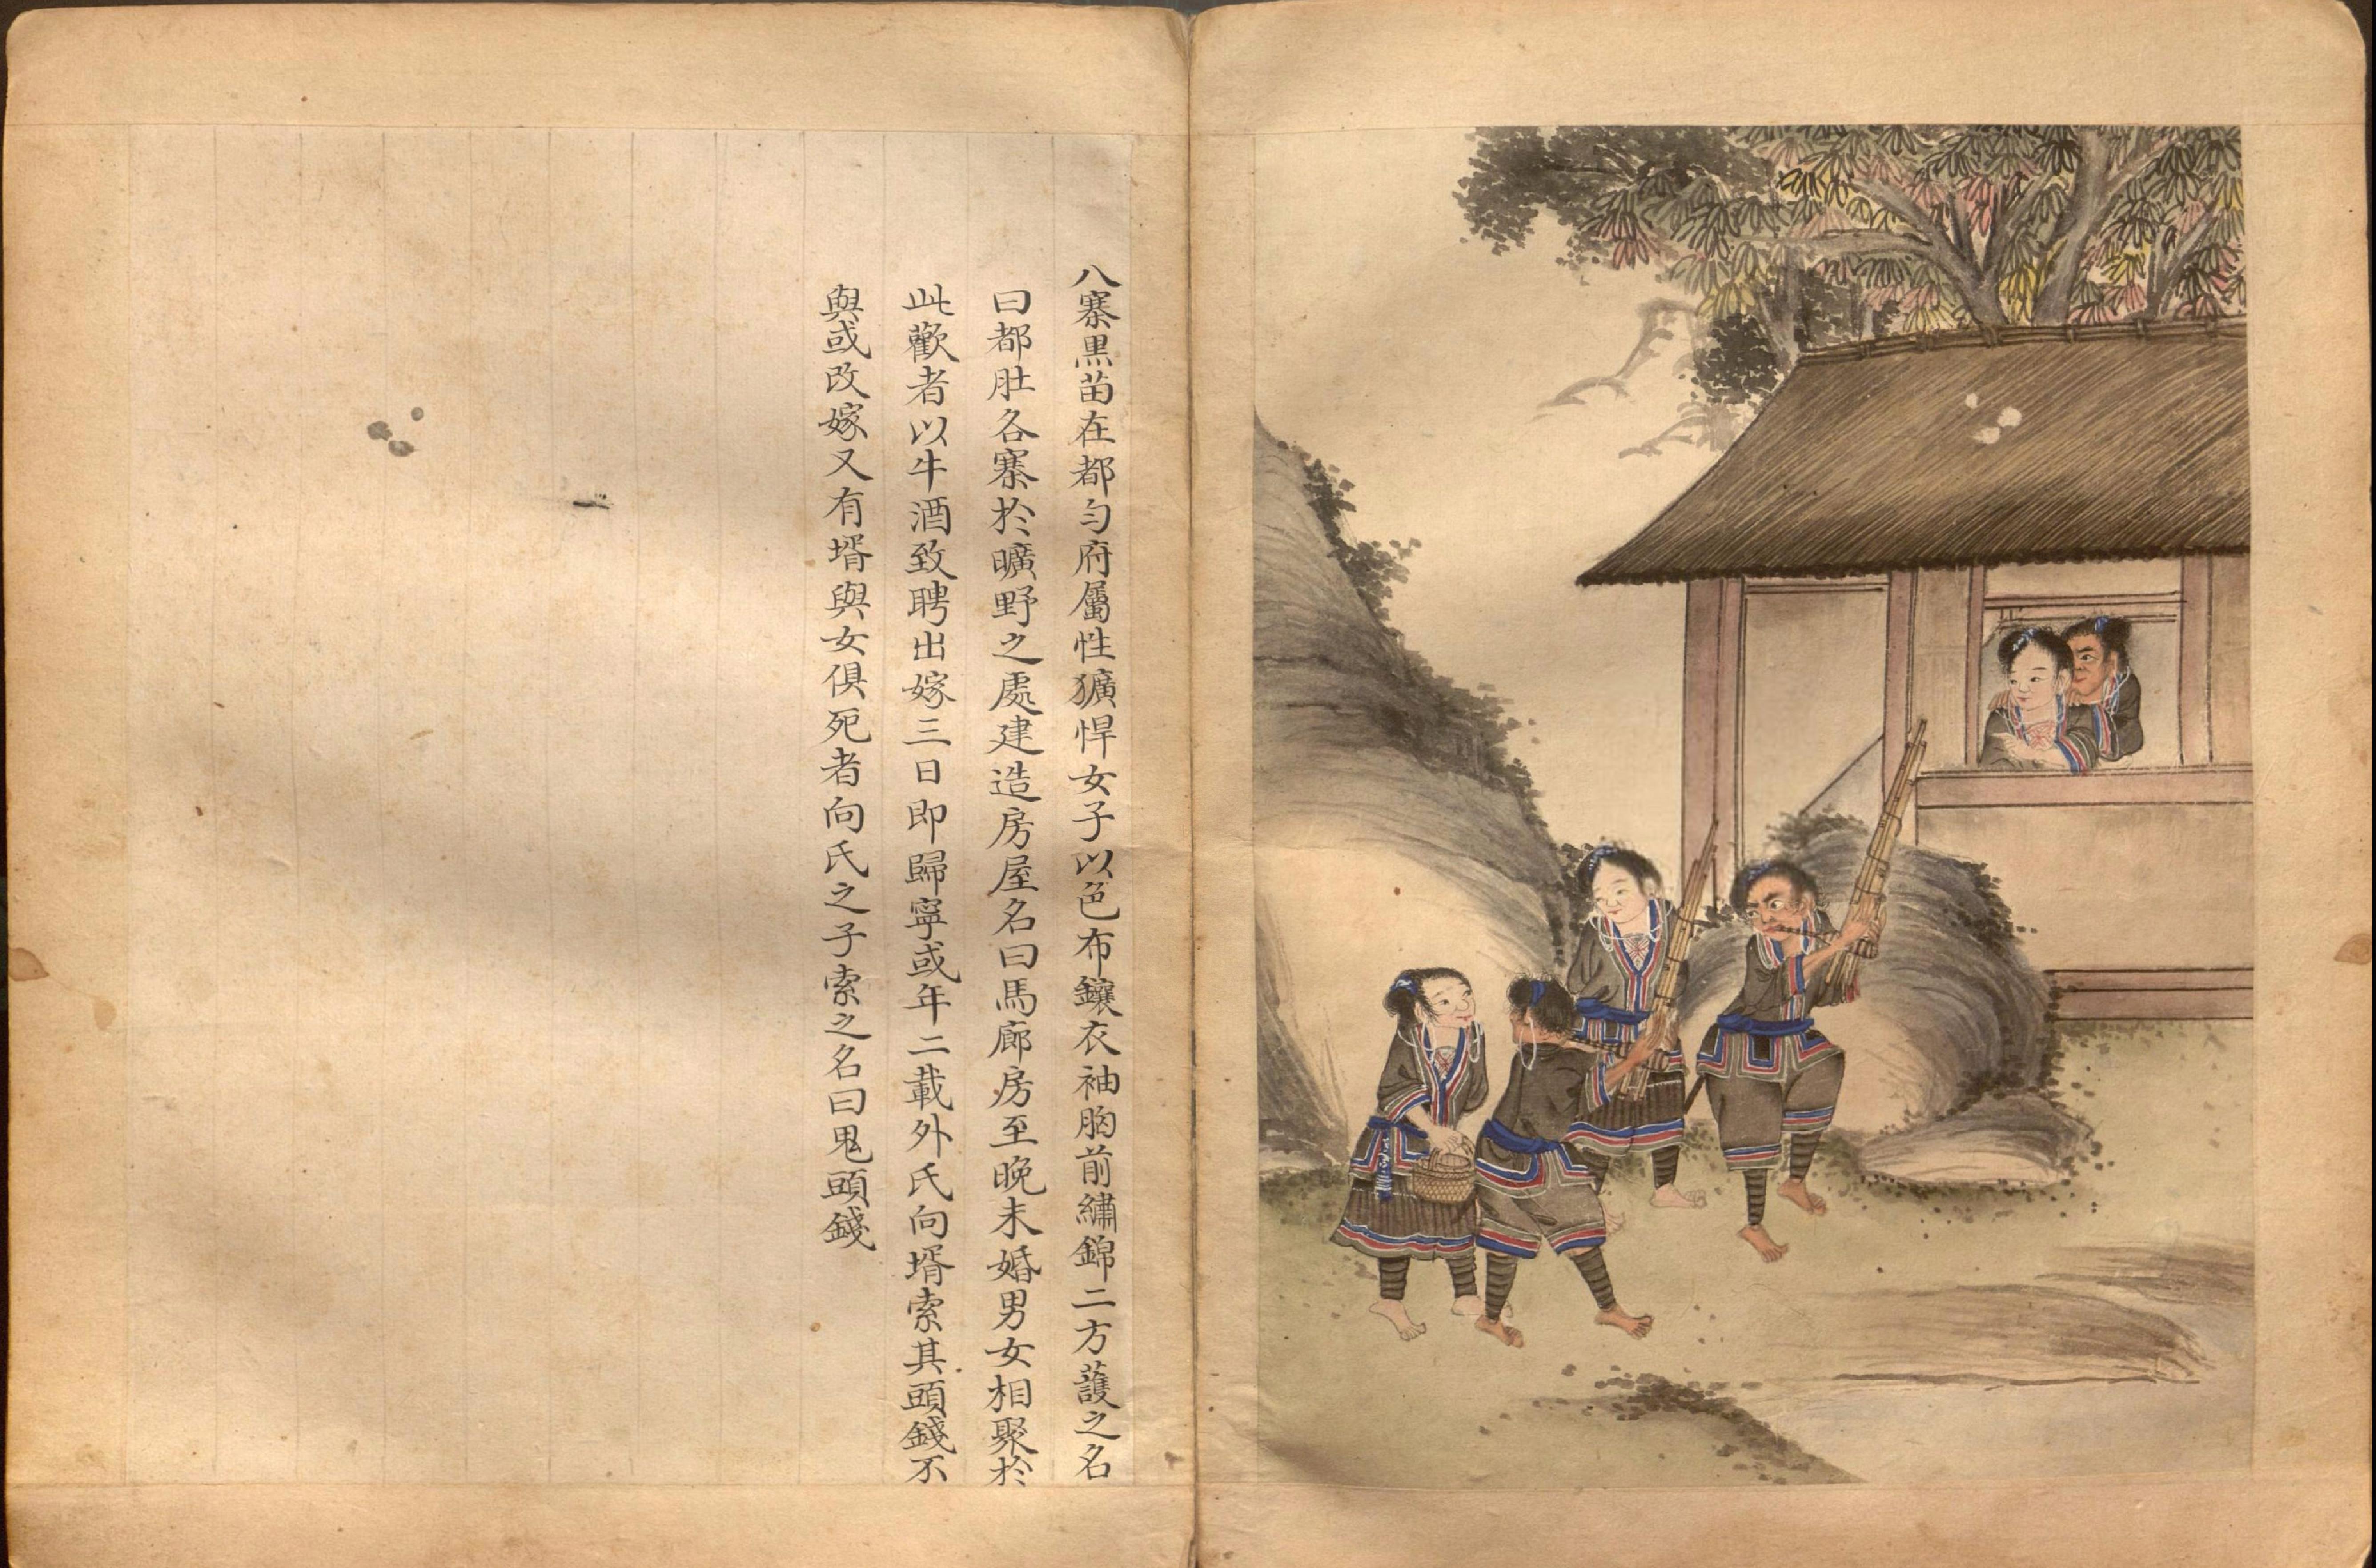 八寨黒苗在都勻府屬性獷悍女子以色布鑲衣袖胸前繡錦二方護之名
曰都肚各寨於曠野之處建造房屋名曰馬廊房至晚未婚男女相聚於
此歡者以牛酒致聘出嫁三日即歸寧或年二載外氏向壻索其頭錢不
與或改嫁又有壻與女俱死者向氏之子索之名曰鬼頭錢